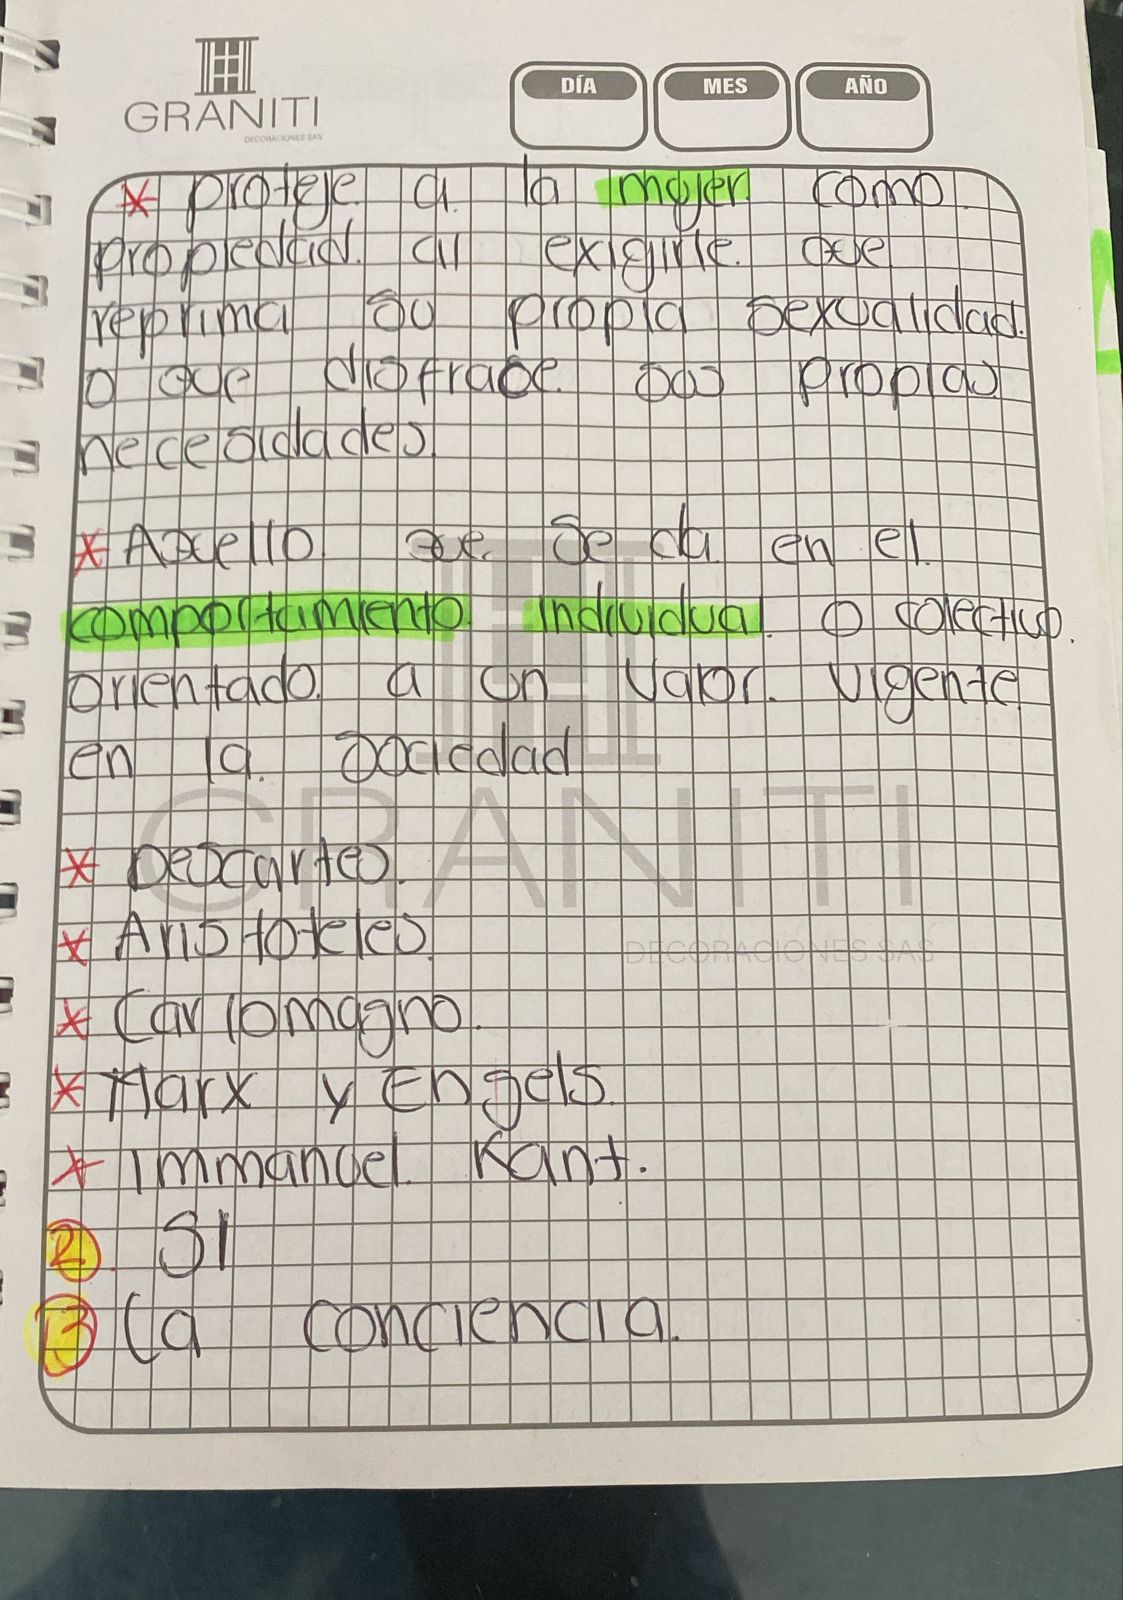 GRANITI
DECORACIONES SAS
DÍA MES AÑO
* proteje a la mujer como
propiedad al exigirle que
reprima su propia sexualidad
o que disfrace sus propias
necesidades
* Aquello que se da en el
comportamiento individual o colectivo.
orientado a un valor vigente
en la sociedad
GRANITI
DECORACIONES SAS
* Descartes.
* Aristoteles
* Carlomagno.
* Marx y Engels.
* Immanuel Kant.
2. SI
13 La conciencia.